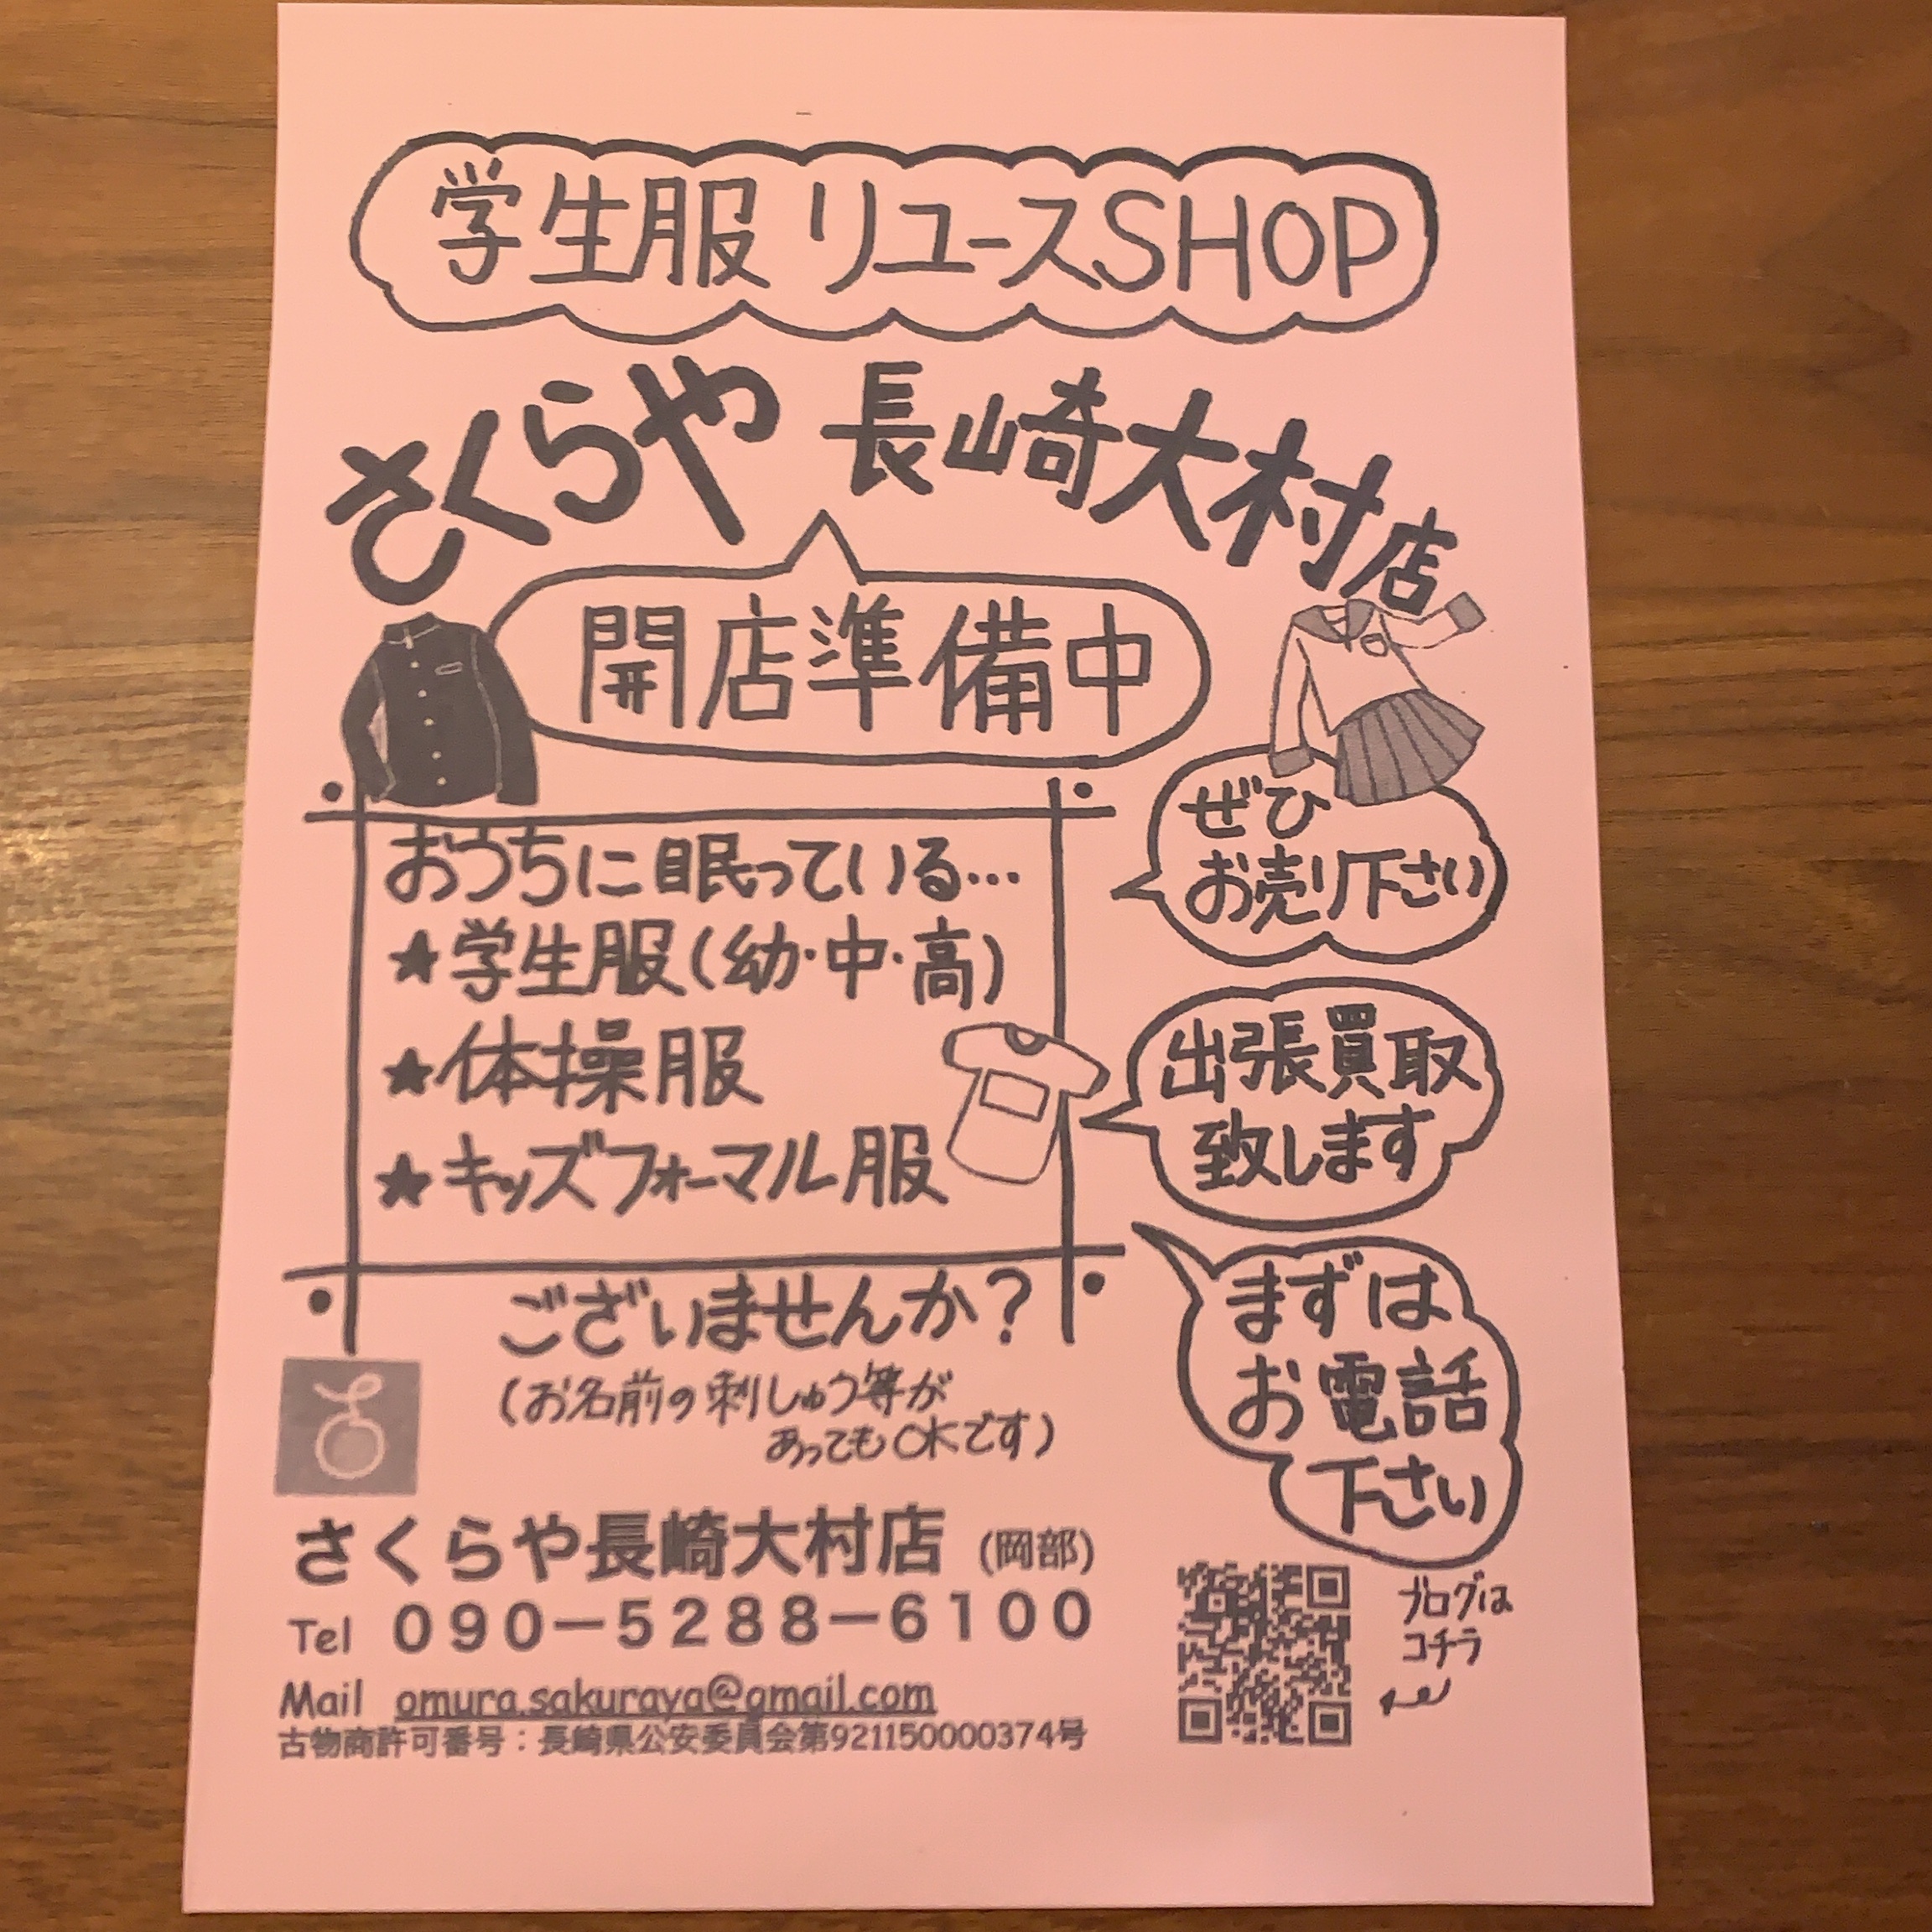 学生服 リユースSHOP
さくらや 長崎大村店
開店準備中
おうちに眠っている…
★学生服(幼・中・高)
★体操服
★キッズフォーマル服
ございませんか?
(お名前の刺しゅう等が
あってもOKです)
ぜひ
お売り下さい
出張買取
致します
まずは
お電話
下さい
さくらや長崎大村店 (岡部)
Tel 090-5288-6100
Mail omura.sakuraya@gmail.com
古物商許可番号:長崎県公安委員会第921150000374号
ブログは
コチラ